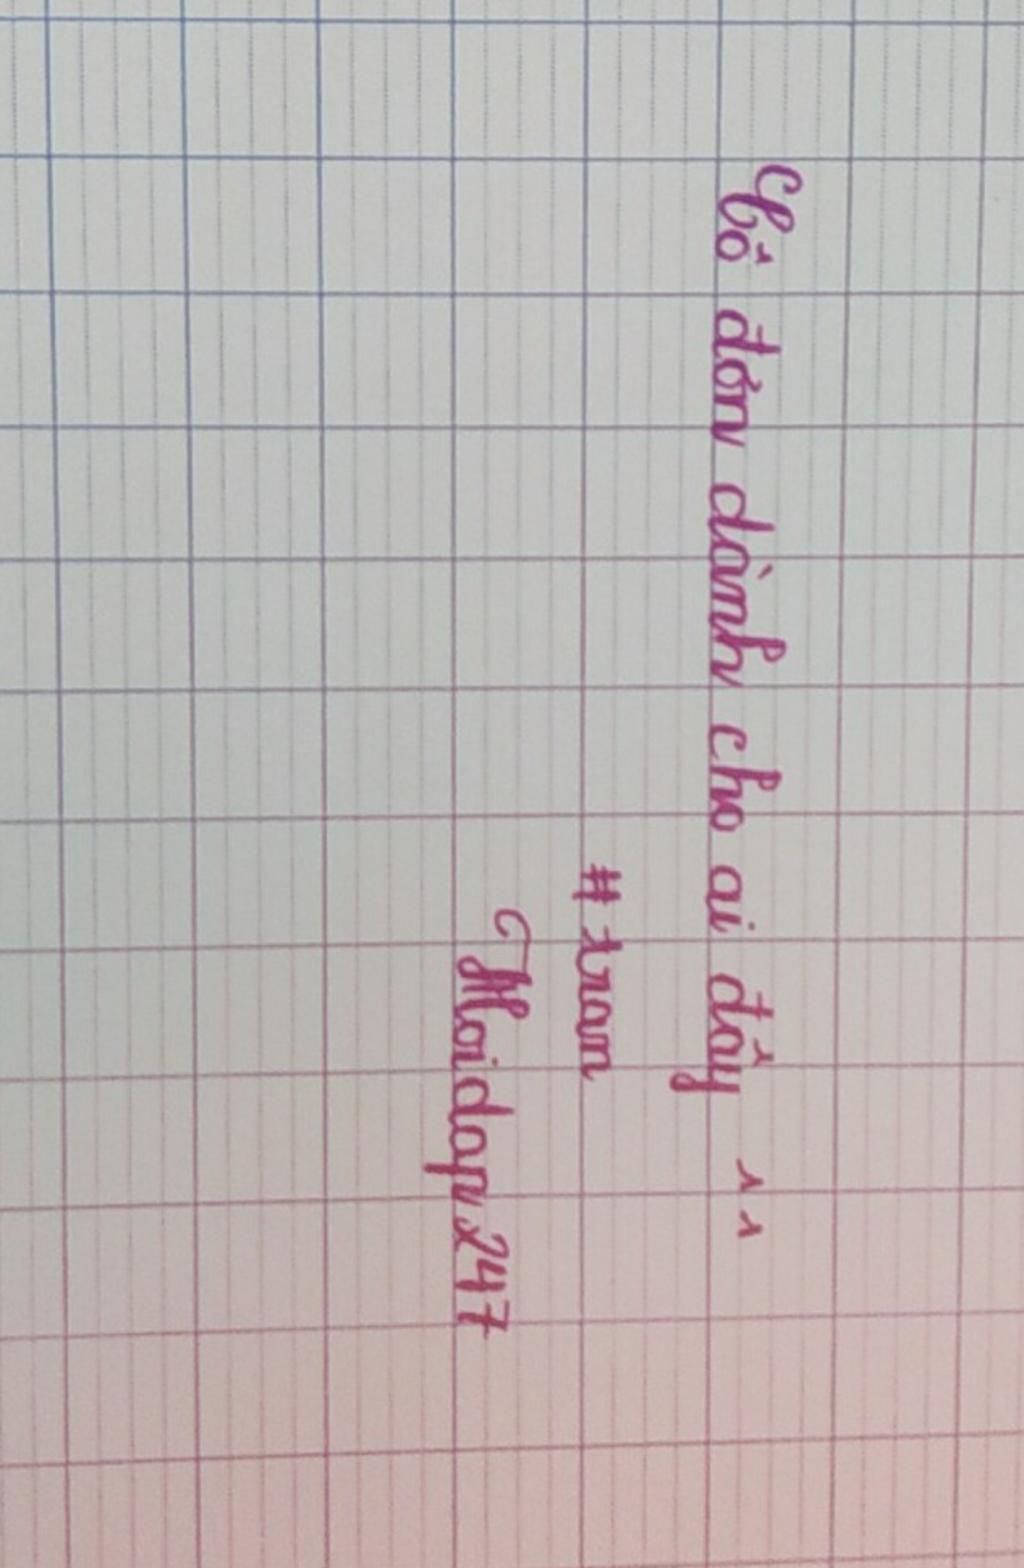 Cố đơn dành cho ai đấy ^ ^
# xram
Hoidap247